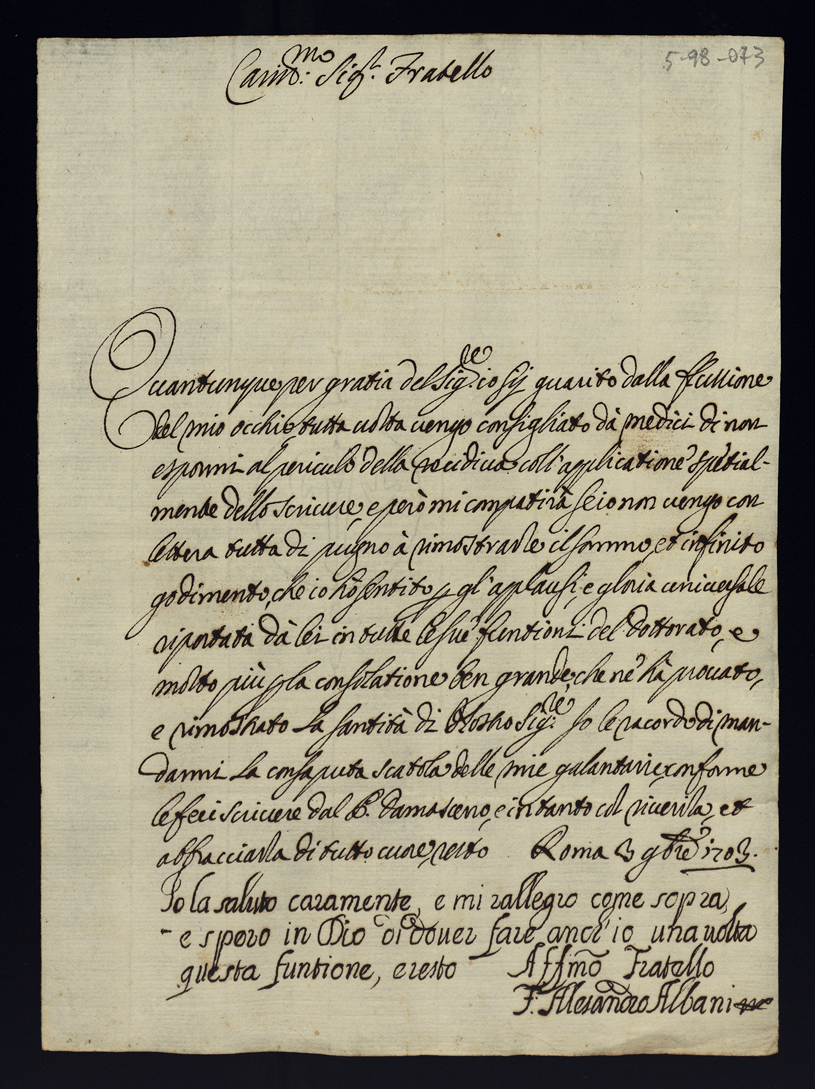 5-98-073
Carissmo: Sigr. Fratello
Quantunque per gratia del Sigre. io sij guarito dalla flussione
del mio occhio, tutta volta vengo consigliato dà medici di non
espormi al periculo della recidiva coll' applicatione spetial-
mente dello scrivere, e però mi compatirà se io non vengo con
lettera tutta di pugno à rimostrarle il sommo, et infinito
godimento, che io hò sentito p gl' applausi, e gloria universale
riportata dà lei in tutte le sue funtioni del dottorato, e
molto più p la consolatione ben grande, che nè hà provato,
e rimostrato La santità di Nostro Sigre. Io le racordo di man-
darmi La consaputa scatola delle mie galantarie conforme
le feci scrivere dal P. Damasceno, e intanto col riverirla, et
abbracciarla di tutto cuore, resto Roma 3 9bre 1703.
Io la saluto caramente, e mi rallegro come sopra,
e spero in Dio di dover fare anch' io una volta
questa funtione, e resto Affmo Fratello
F. Alesandro Albani